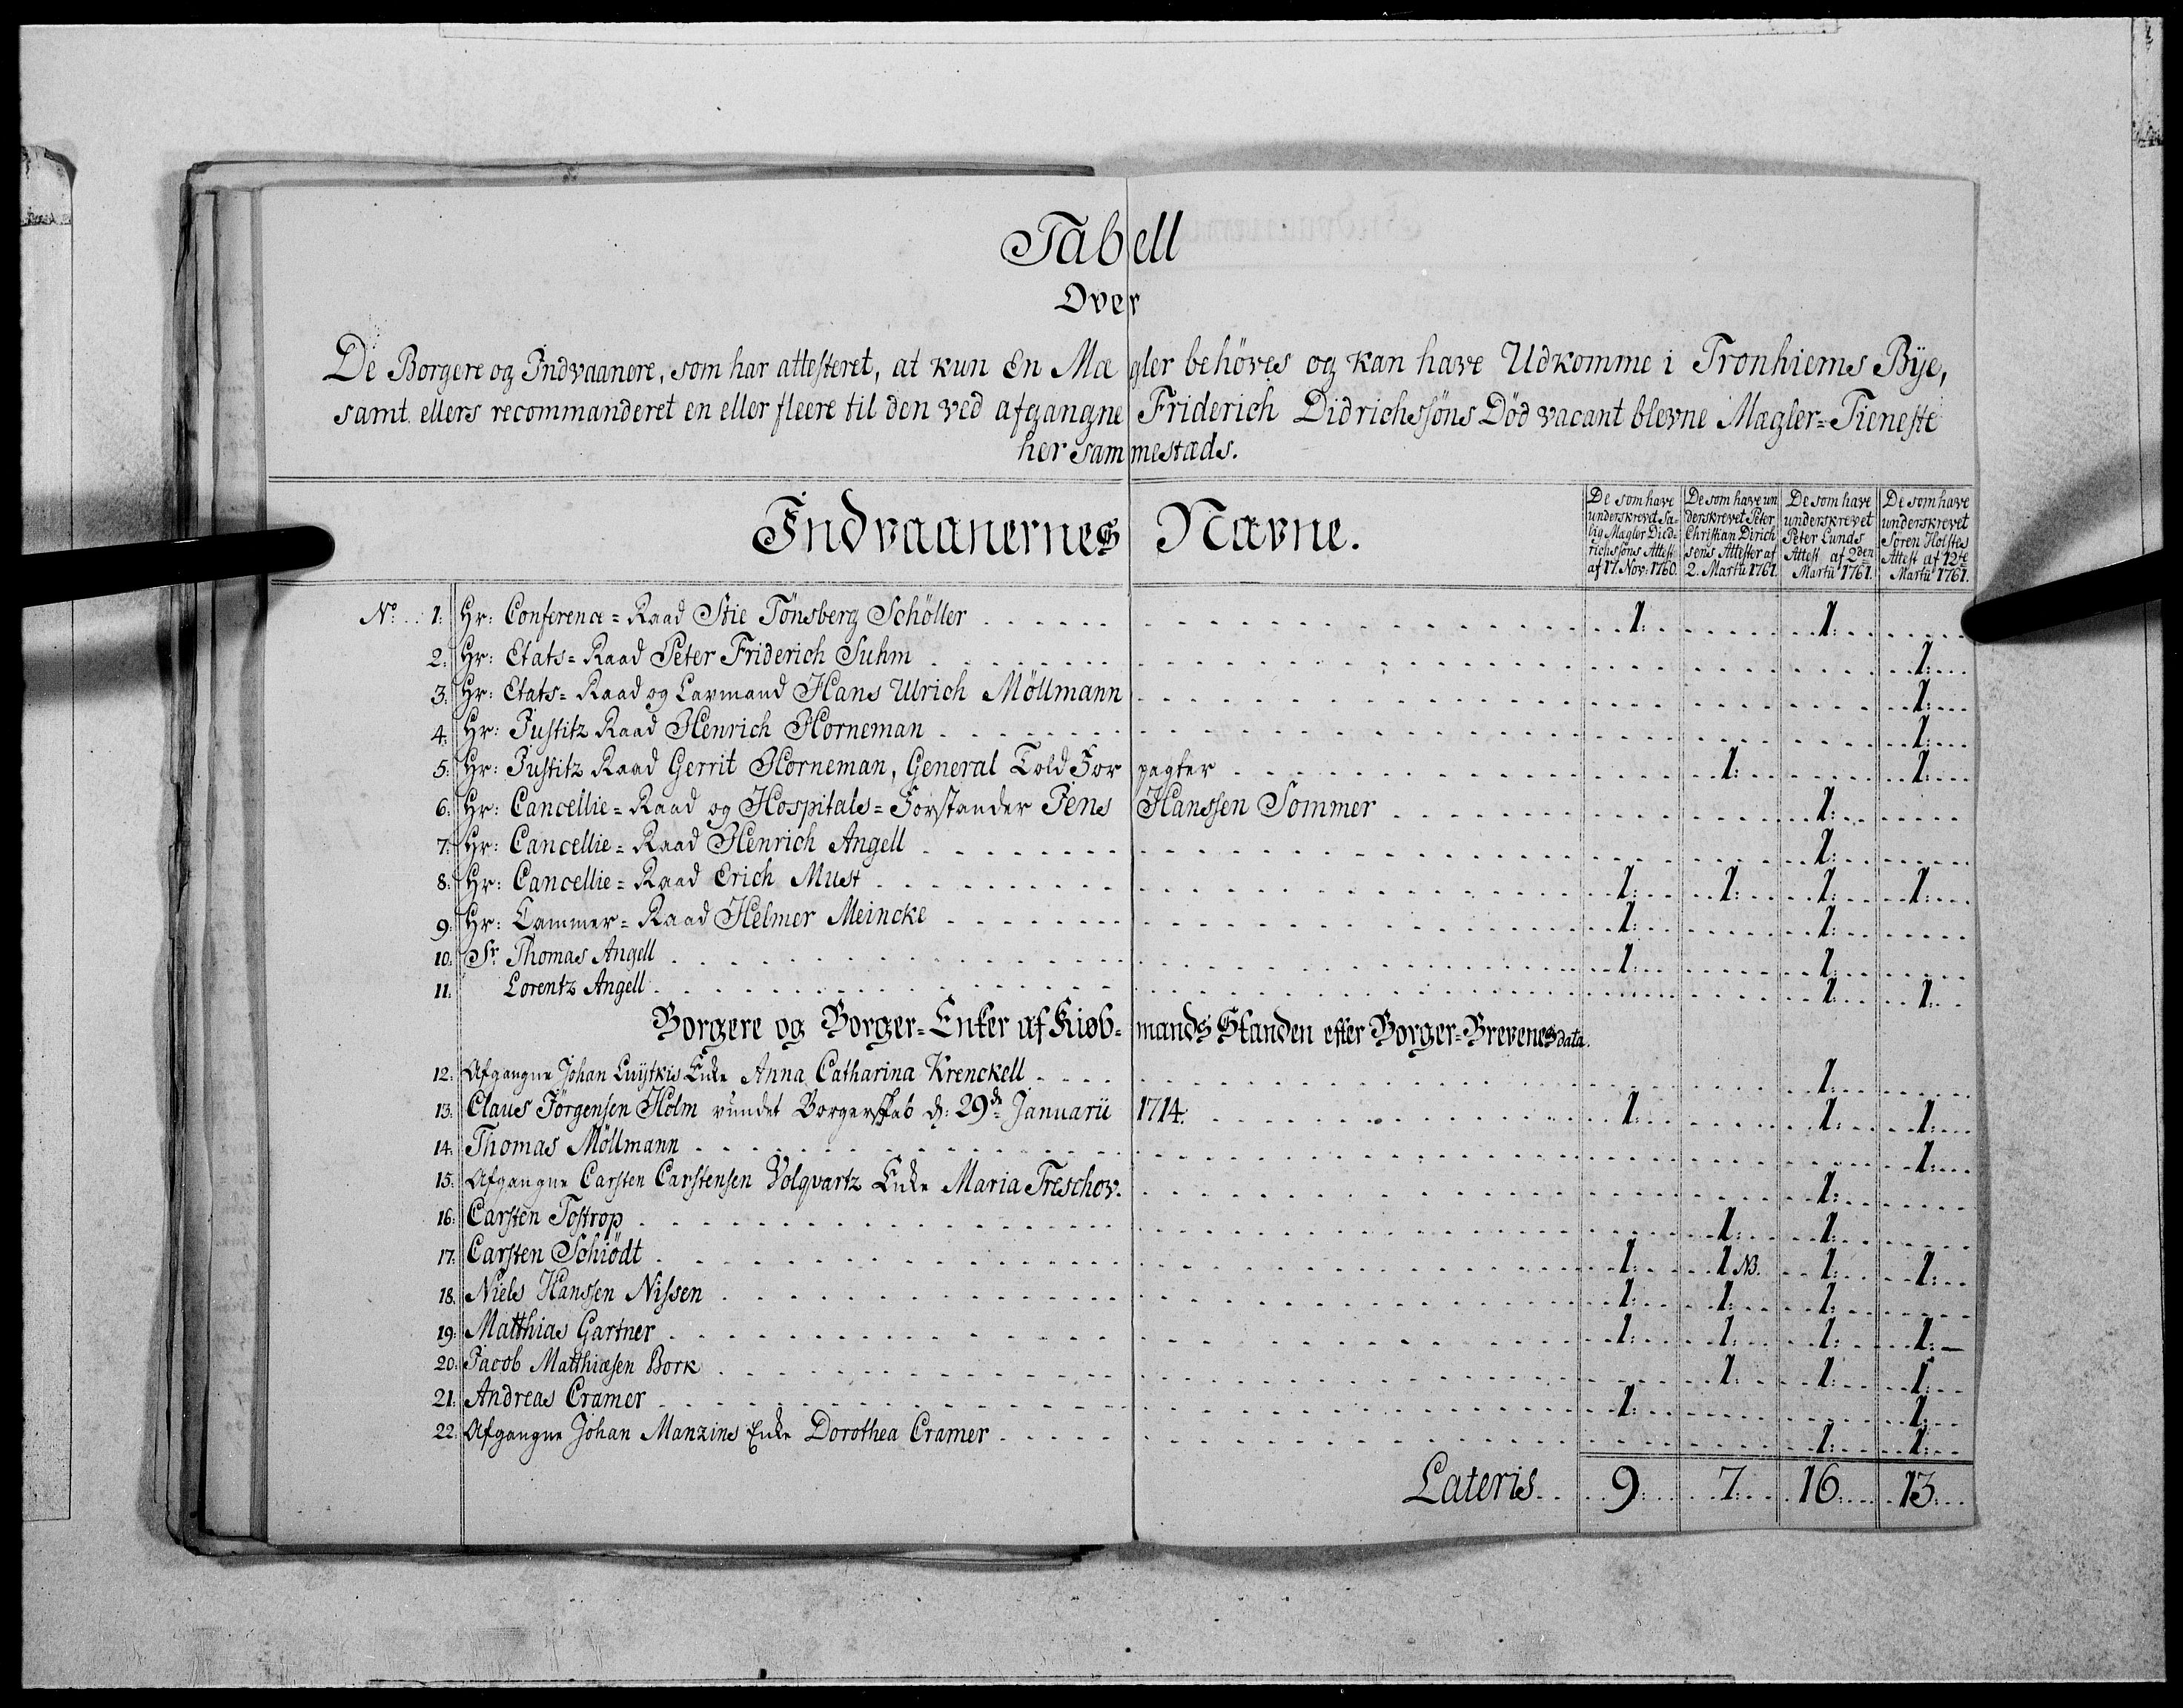 Tabell
Over
De Borgere og Indvaanere, som har attesteret, at kun En Mægler behöves og kan have Udkomme i Tronhiems Bÿe,
samt ellers recommanderet en eller fleere til den ved afgangne Friderich Didrichssöns Död vacant blevne Mægler=Tieneste
her sammestæds.
Indvaanernes Navne.
De som have underskrevet Sa-
lig Mægler Died-
richssöns Attest
af 17. Nov: 1760.
De som have un
derskrevet Peter
Christian Dirich
sens Attester af
2. Martii 1761.
De som have
underskrevet
Peter Lunds
Attest af 2den
Martii 1761.
De som have
underskrevet
Sören Holstes
Attest af 12te
Martii 1761.
No. 1: Hr: Conference=Raad Stie Tönsberg Schöller 1: 1:
2: Hr: Etats=Raad Peter Friderich Suhm 1:
3: Hr: Etats=Raad og Lavmand Hans Ulrich Möllmann 1:
4: Hr: Justitz Raad Henrich Horneman 1:
5: Hr: Justitz Raad Gerrit Horneman, General Told Forpagter 1: 1:
6: Hr: Cancellie=Raad og Hospitals=Forstander Jens Hanssen Sommer 1:
7: Hr: Cancellie=Raad Henrich Angell 1:
8: Hr: Cancellie=Raad Erich Must 1: 1: 1: 1:
9: Hr: Cammer=Raad Helmer Meincke 1: 1:
10: Sr. Thomas Angell 1: 1:
11: Lorentz Angell 1: 1:
Borgere og Borger=Enker af Kiøbmands Standen efter Borger=Brevenes data.
12: Afgangne Johan Luÿtkis Enke Anna Catharina Krenckell 1:
13: Claus Jörgensen Holm vundet Borgerskab d: 29de Januarii 1714: 1: 1: 1:
14: Thomas Möllmann 1:
15: Afgangne Carsten Carstensen Volqvartz Enke Maria Treschov. 1:
16: Carsten Tostrop 1: 1:
17: Carsten Schiödt 1: 1 NB. 1: 1:
18. Niels Hanssen Nissen 1: 1: 1:
19: Matthias Gartner 1: 1: 1: 1:
20: Jacob Matthiæsen Bork 1: 1: 1:
21: Andreas Cramer 1: 1:
22: Afgangne Johan Manzins Enke Dorothea Cramer 1: 1:
Lateris 9: 7: 16: 13: